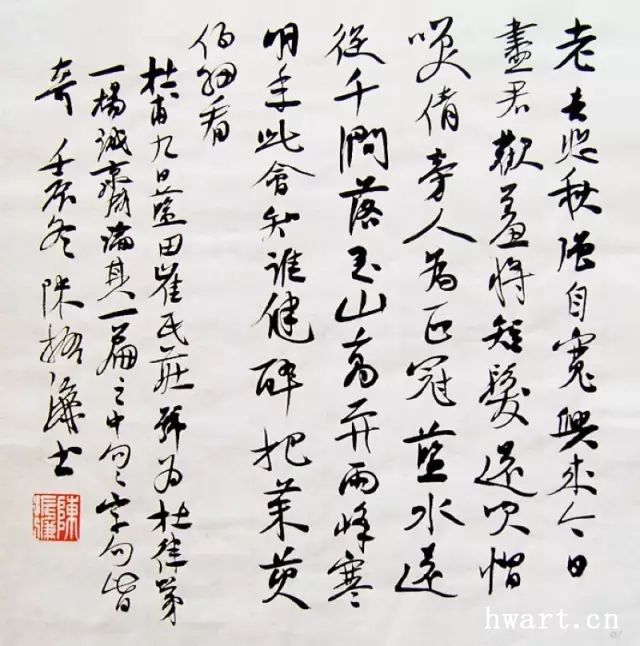 老去悲秋强自寬興来今日
盡君歡羞将短髮還吹帽
咲倩旁人為正冠藍水遠
從千澗落玉山高并兩峰寒
明年此會知誰健醉把茱萸
仔細看
杜甫九日藍田崔氏莊號為杜律第
一楊誠齋謂其一篇之中句々字句皆
奇 壬辰冬 陳振濂书
陳振濂
hwart.cn